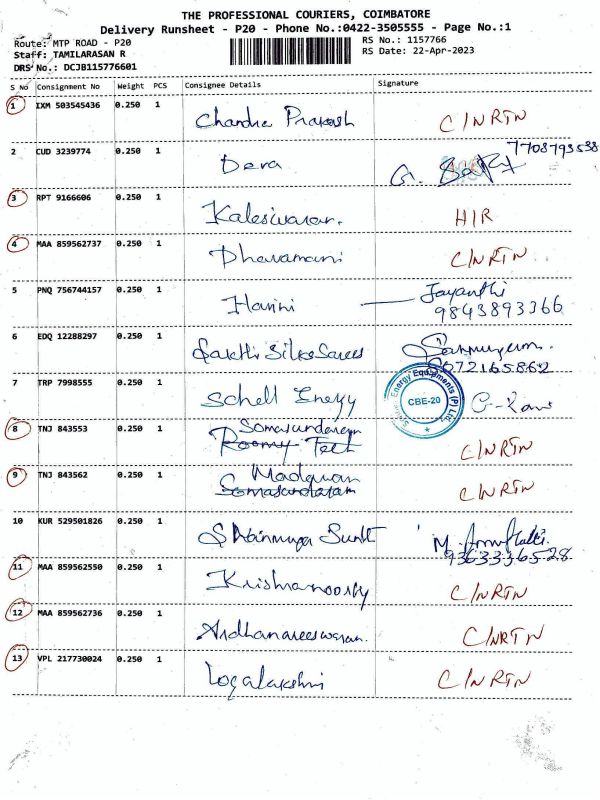 THE PROFESSIONAL COURIERS, COIMBATORE
Delivery Runsheet - P20 - Phone No.:0422-3505555 - Page No.:1
Route: MTP ROAD - P20 RS No.: 1157766
Staff: TAMILARASAN R RS Date: 22-Apr-2023
DRS No.: DCJB115776601
S No Consignment No Weight PCS Consignee Details Signature
1 IXM 503545436 0.250 1 Chandra Prakash C/NRTN
7708793538
2 CUD 3239774 0.250 1 Deva G.
3 RPT 9166606 0.250 1 Kaleswaran. H/R
4 MAA 859562737 0.250 1 Dhavamani C/NRTN
5 PNQ 756744157 0.250 1 Harini — Jayanthi
9843893366
6 EDQ 12288297 0.250 1 Sakthi Silks Sarees
8072165862
7 TRP 7998555 0.250 1 Schell Energy
Energy Equipments (P) Ltd. CBE-20
8 TNJ 843553 0.250 1 Somasundaram C/NRTN
Roomy Tech
9 TNJ 843562 0.250 1 C/NRTN
Somasundaram
10 KUR 529501826 0.250 1 M.
9363336528
11 MAA 859562550 0.250 1 Krishnamoorthy C/NRTN
12 MAA 859562736 0.250 1 Ardhanareeswaran. C/NRTN
13 VPL 217730024 0.250 1 Logalakshmi C/NRTN